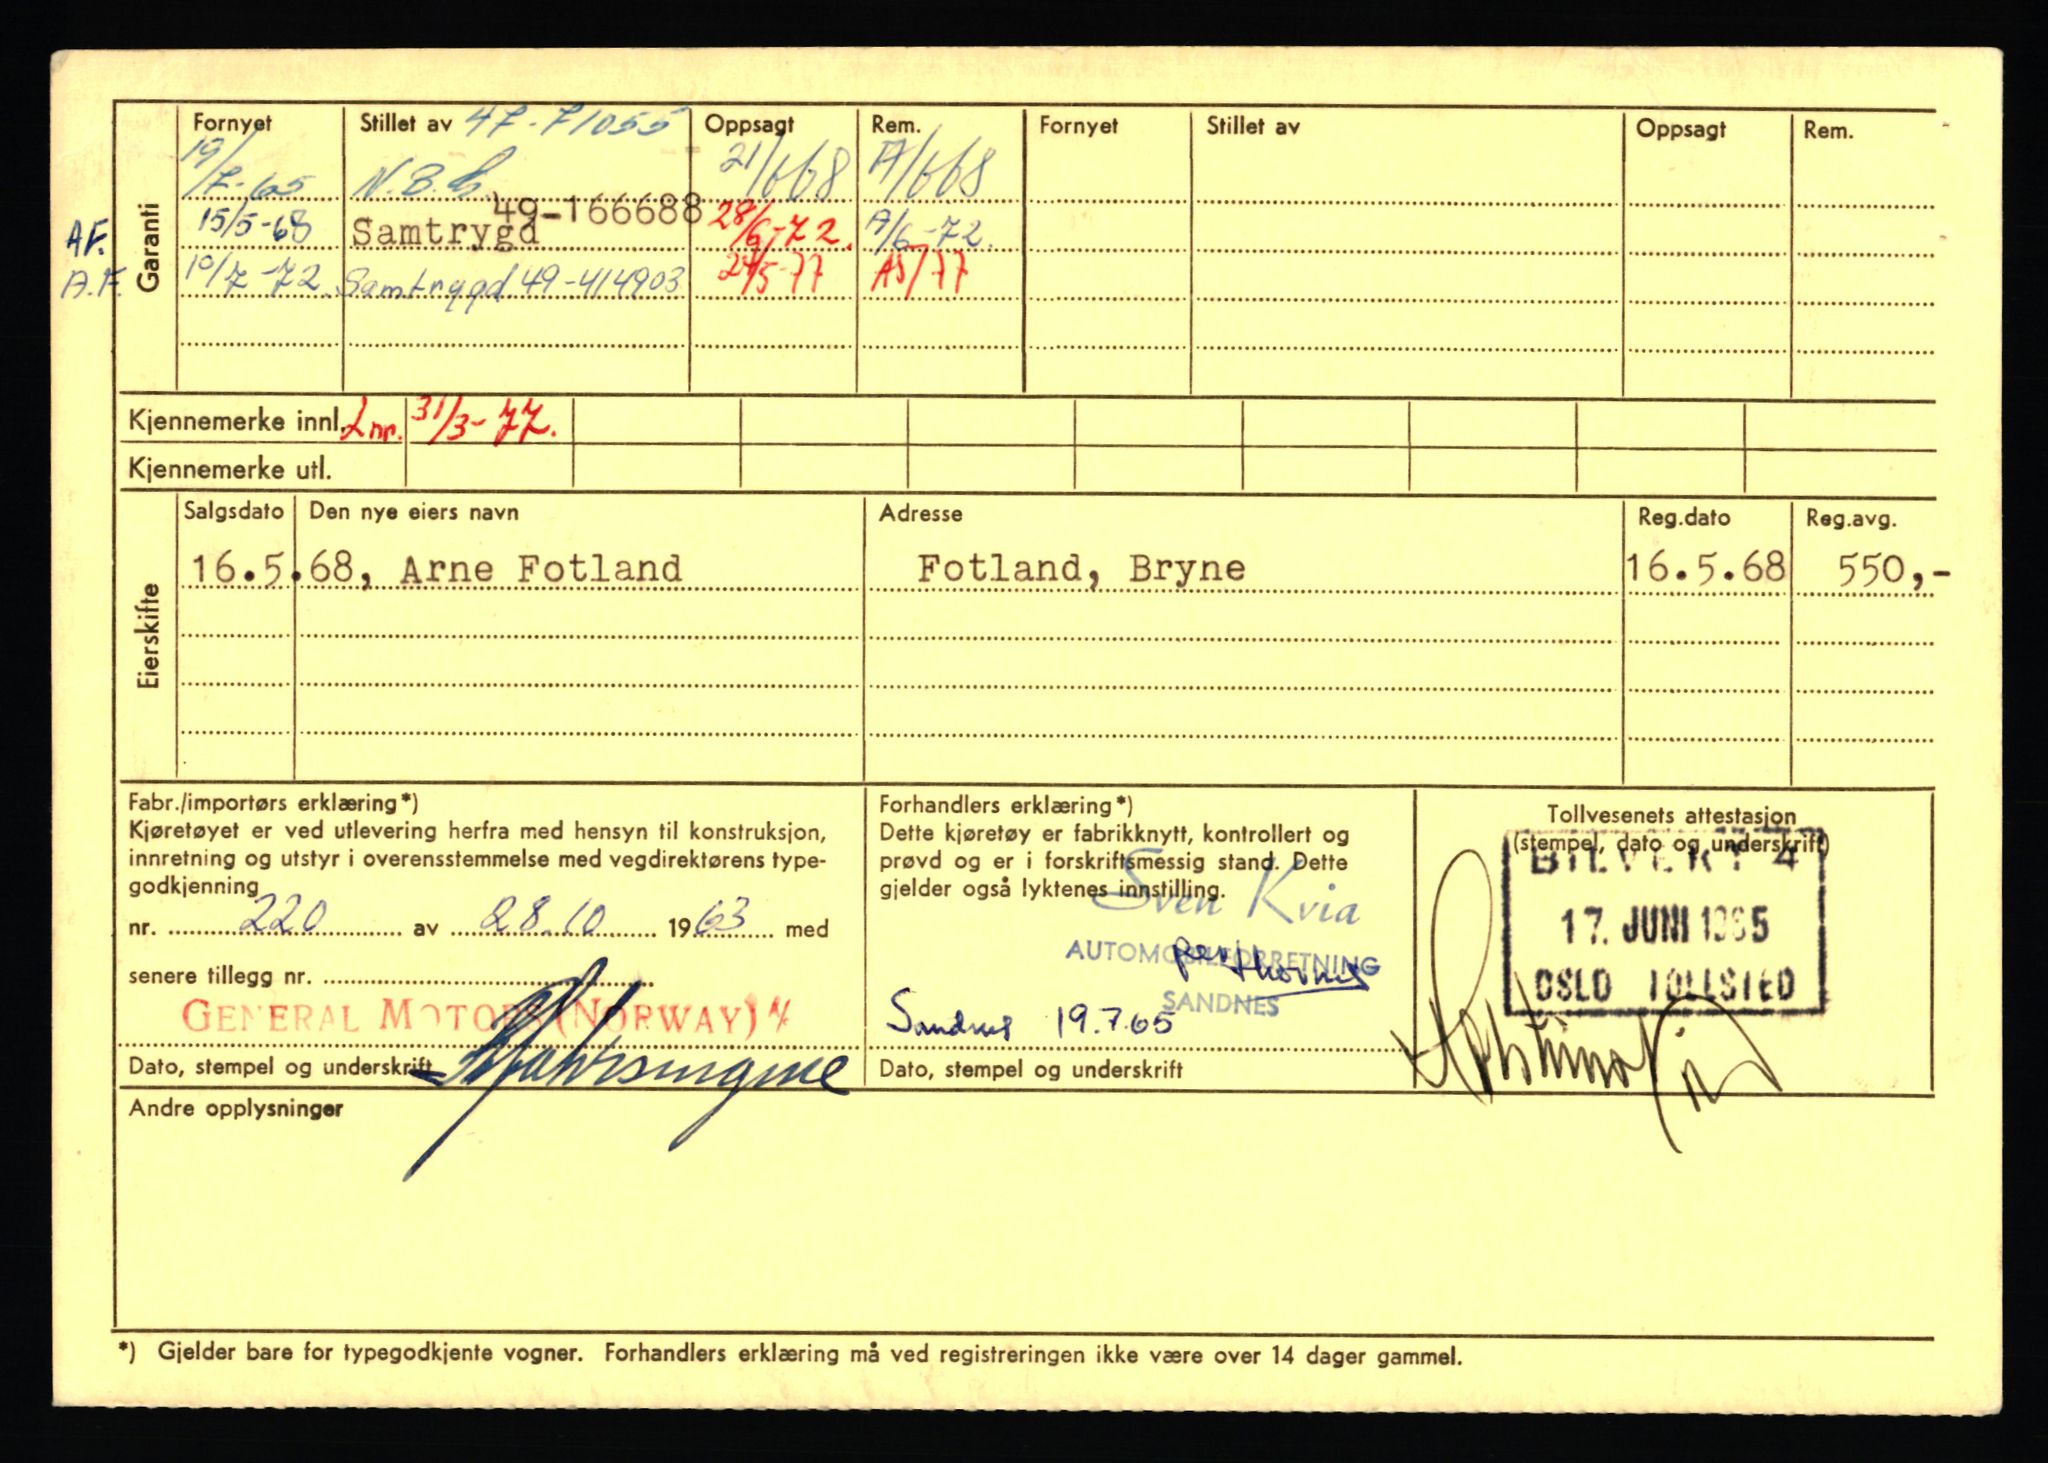 Garanti
Fornyet Stillet av 47-71055 Oppsagt Rem. Fornyet Stillet av Oppsagt Rem.
19/7-65 N.B. 21/668 A/668
AF. 15/5-68 Samtrygd 49-166688 28/6-72. A/6-72.
A.F. 10/7-72. Samtrygd 49-414903 24/5-77 A5/77
Kjennemerke innl. 2 nr. 31/3-77.
Kjennemerke utl.
Eierskifte
Salgsdato Den nye eiers navn Adresse Reg.dato Reg.avg.
16.5.68, Arne Fotland Fotland, Bryne 16.5.68 550,-
Fabr./importørs erklæring*)
Kjøretøyet er ved utlevering herfra med hensyn til konstruksjon,
innretning og utstyr i overensstemmelse med vegdirektørens type-
godkjenning
nr. 220 av 28.10 1963 med
senere tillegg nr.
GENERAL MOTORS (NORWAY) A/S
Dato, stempel og underskrift
Forhandlers erklæring*)
Dette kjøretøy er fabrikknytt, kontrollert og
prøvd og er i forskriftsmessig stand. Dette
gjelder også lyktenes innstilling.
Sven Kvia
AUTOMOBILFORRETNING
SANDNES
Sandnes 19.7.65
Dato, stempel og underskrift
Tollvesenets attestasjon
(stempel, dato og underskrift)
BILVERT 4
17. JUNI 1965
OSLO TOLLSTED
Andre opplysninger
*) Gjelder bare for typegodkjente vogner. Forhandlers erklæring må ved registreringen ikke være over 14 dager gammel.